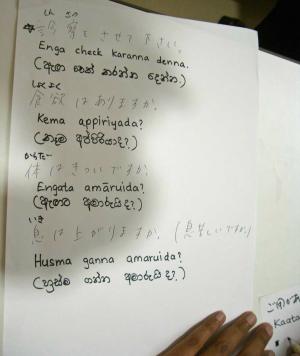 しん さつ
診察をさせて下さい。
Enga check karanna denna.
(ඇඟ චෙක් කරන්න දෙන්න.)
しょくよく
食欲はありますか。
Kema appiriyada?
(කෑම අප්පිරියාද?)
からだ
体はきついですか。
Engata amāruida?
(ඇඟට අමාරුයිද?)
いき
息は上がりますか。(息苦しいですか)
Husma ganna amaruida?
(හුස්ම ගන්න අමාරුයිද?)
Kaata